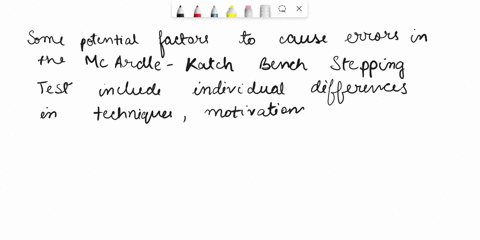 Some potential factors to cause errors in
the Mc Ardle - Katch Bench Stepping
Test include individual differences
in techniques, motivation